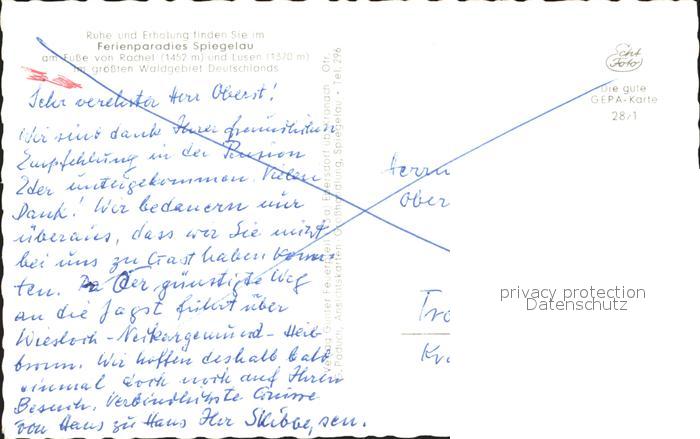 Ruhe und Erholung finden Sie im
Ferienparadies Spiegelau
am Fuße von Rachel (1452 m) und Lusen (1370 m)
im größten Waldgebiet Deutschlands
Echt
Foto
Die gute
GEPA-Karte
28/1
Sehr verehrter Herr Oberst!
Wir sind dank Ihrer freundlichen
Empfehlung in der Pension
Eder untergekommen. Vielen
Dank! Wir bedauern nur
überaus, dass wir Sie nicht
bei uns zu Gast haben konn-
ten. Der günstigste Weg
an die Jagst führt über
Wiesloch - Neckargemünd - Heil-
bronn. Wir hoffen deshalb bald
einmal doch noch auf Ihren
Besuch. Verbindlichste Grüsse
von Haus zu Haus Ihr Skibbe, sen.
Herrn
Ober
privacy protection
Datenschutz